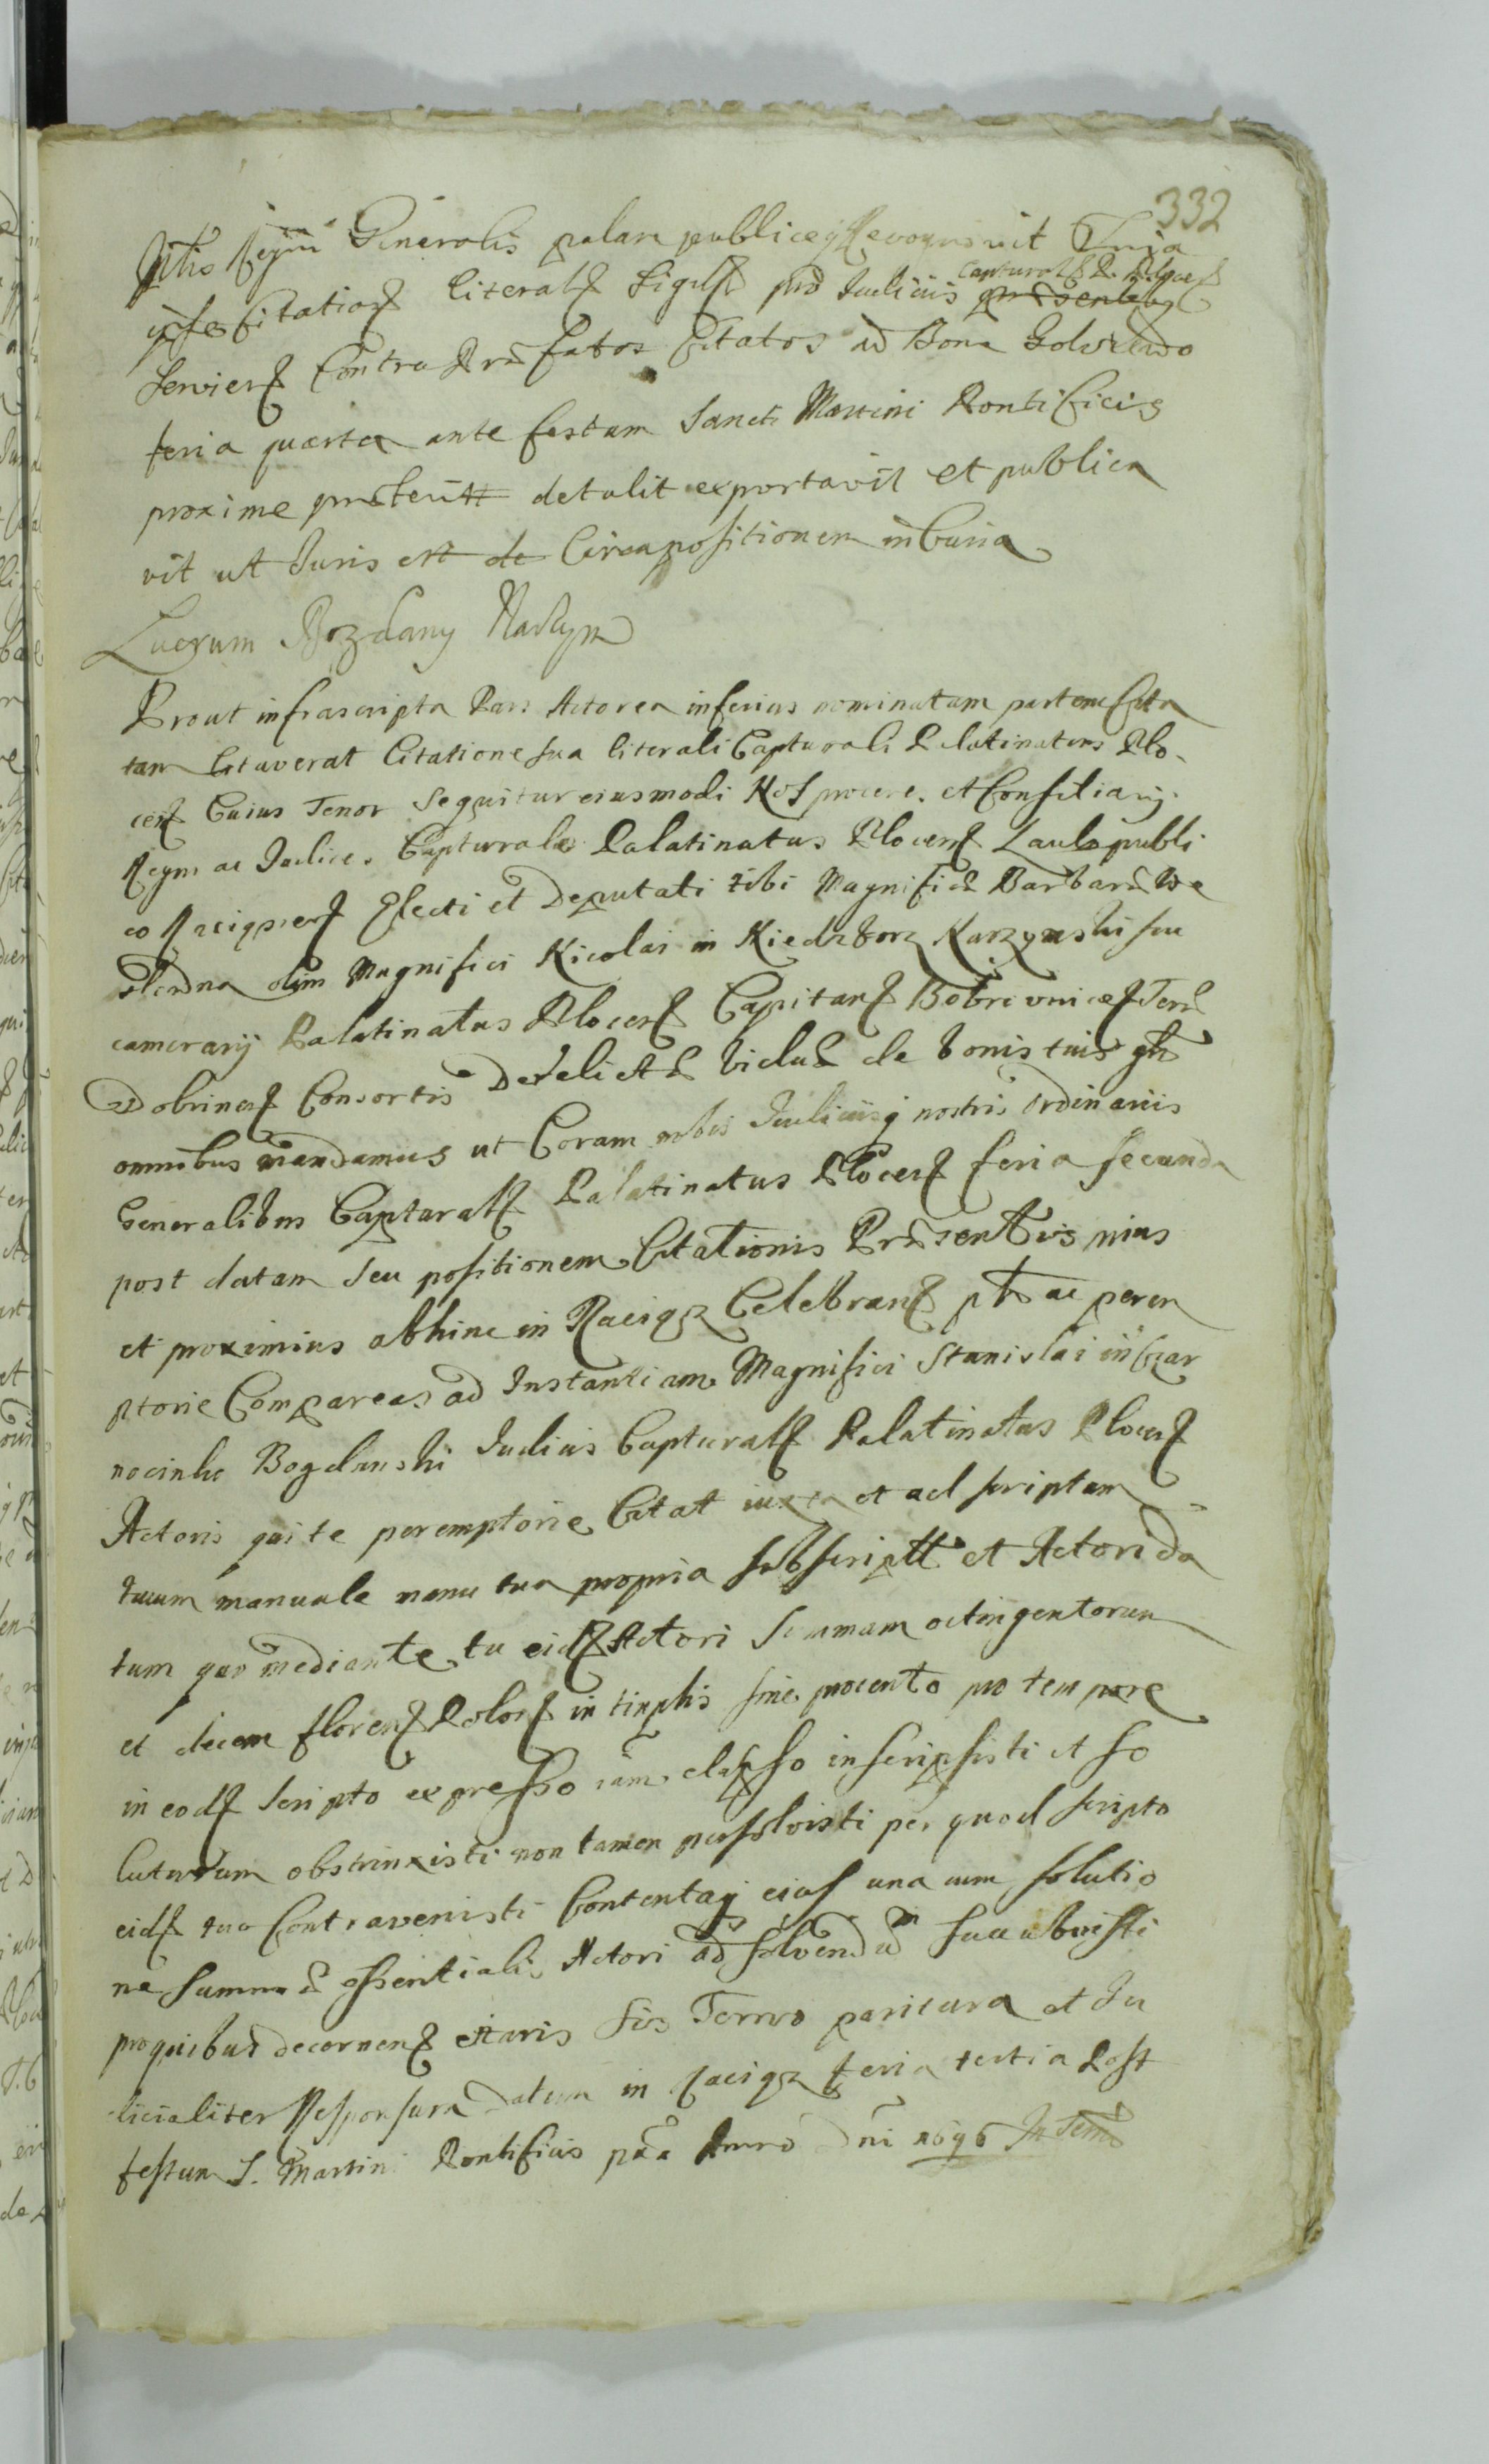 332
Regni Generalis palam publiceq Recognovit
Citation literal pro Judiciis Captural
Servien Contra Præfatos Citatos ad Bona Golczewo
feria quarta ante festum Sancti Martini Pontificis
proxime præteritt detulit exportavit et publica
vit ut Juris est de Circa positionem in Curia
Lucrum Bozdany
Prout infrascripta Pars Actorea inferius nominatam partem Cita
tam Citaverat Citatione sua literali Capturali Palatinatus Plo
cen Cuius Tenor Sequitur eiusmodi Nos proceres et Consiliarij
Regni ac Judices Capturales Palatinatus Plocen Laudo publi
co Raciqzien Electi et Deputati tibi Magnificæ Barbaræ
olim Magnifici Nicolai in Niedzborz Narzymski suc
camerarij Palatinatus Plocen Capitan Bobrovnicen Terræ
Dobrinen Consortis Derelictæ viduæ de bonis tuis
omnibus mandamus ut Coram nobis Judiciisq nostris Ordinariis
Generalibus Captural Palatinatus Plocen feria secunda
post datam seu positionem Citationis Præsentis
et proximius abhinc in Raciqz Celebran ac perem
ptorie Compareas ad Instantiam Magnifici Stanislai in Czar
nocinko Bogdanski Judicis Captural Palatinatus Plocen
Actoris qui te peremptorie Citat iuxta et ad scriptum
tuum manuale manu tua propria subscriptt et Actori da
tum quo mediante tu eid Actori Summam octingentorum
et decem floren Polon in timphis sine procento pro tempore
in eod scripto expresso iam elapso inscripsisti et so
luturum obstrinxisti non tamen persolvisti per quod scripto
eid tuo Contravenisti Contentaq eius una cum solutio
ne Summæ essentialis Actori ad solvendum succubuisti
pro quibus decernen citaris sis Termo paritura et Ju
dicialiter Responsura Datum in Raciqz feria tertia Post
festum S. Martini Pontificis Anno Dni 1696 In Termo